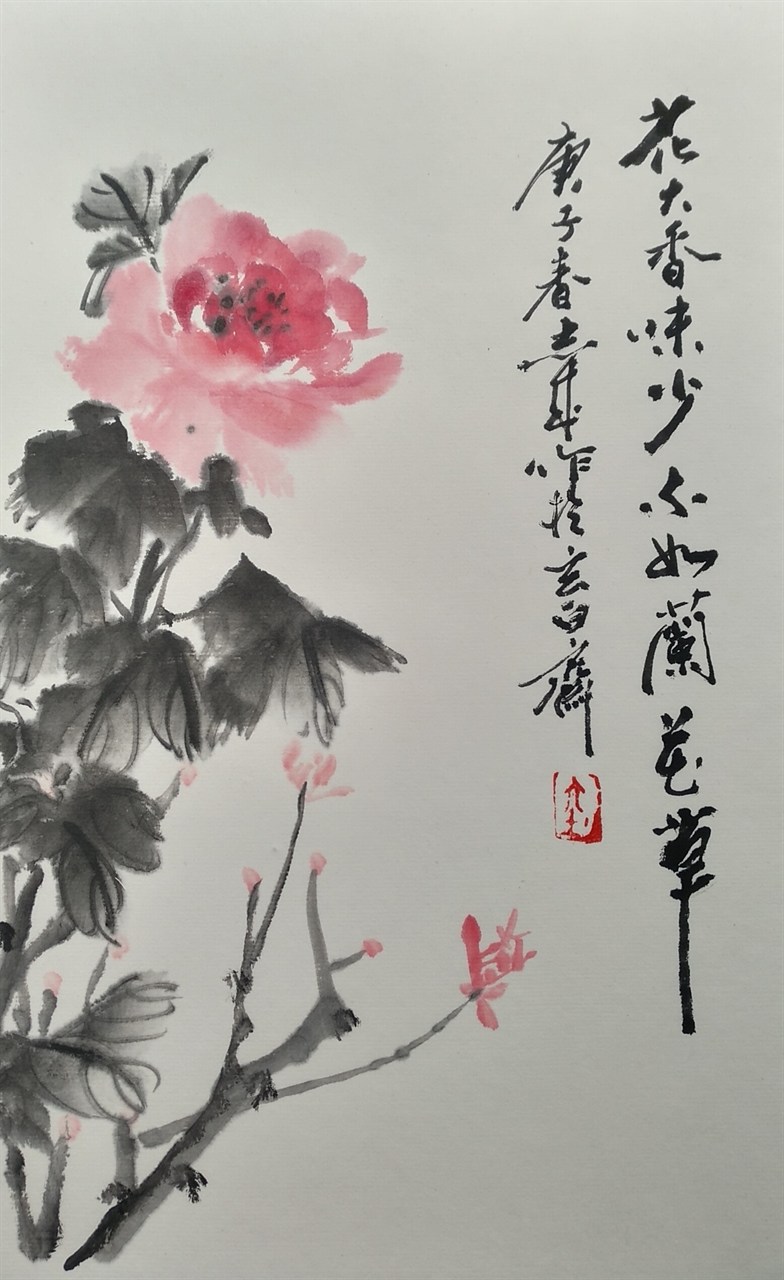 花大香味少不如蘭花草
庚子春志成作於玄白齋